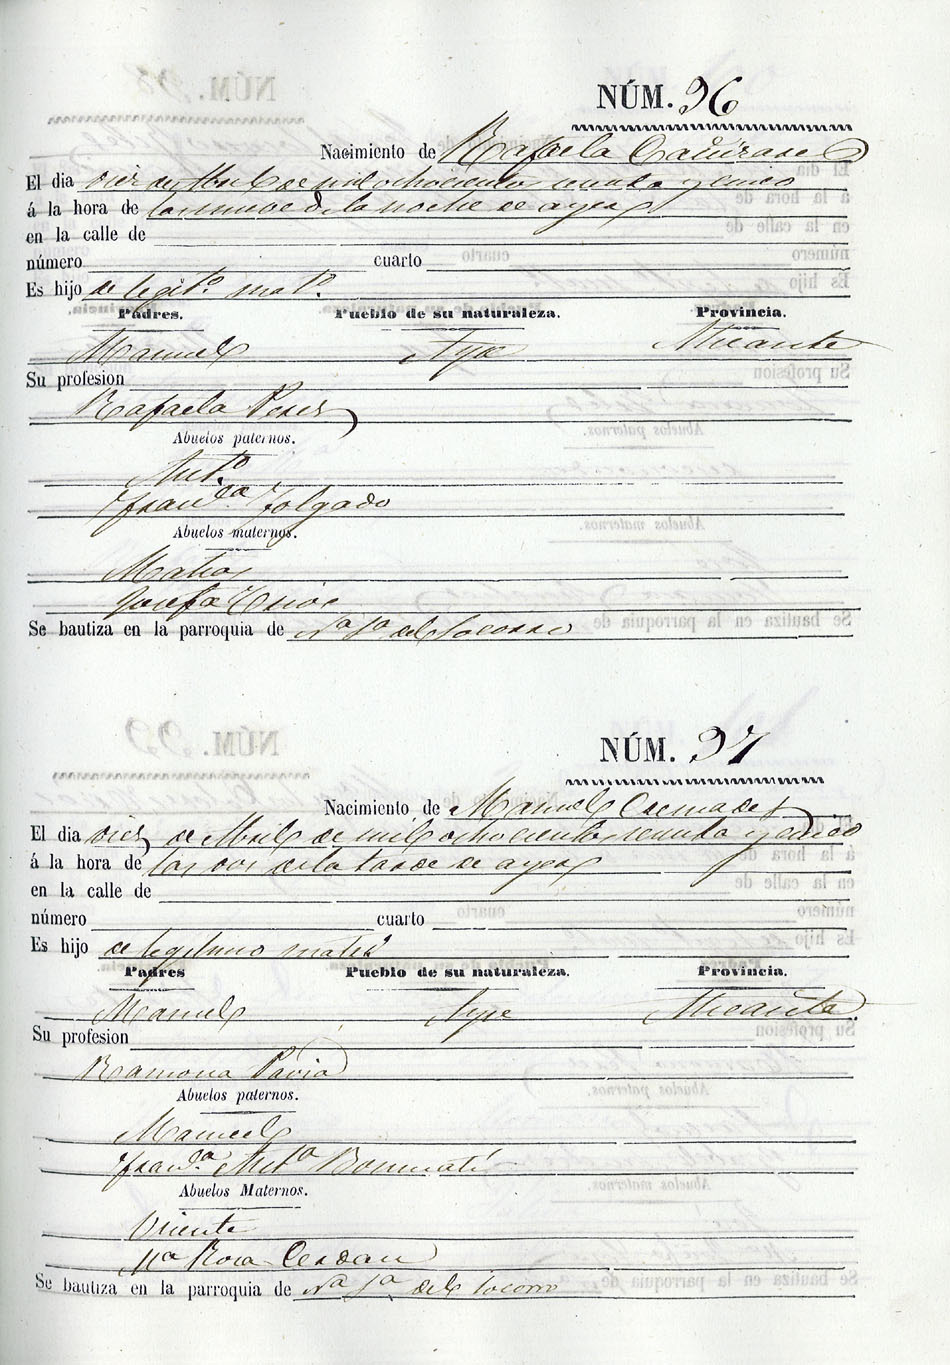 NÚM. 96
Nacimiento de Rafaela
El dia diez de Abril de mil ochocientos sesenta y cinco
á la hora de las nueve de la noche de ayer
en la calle de
número cuarto
Es hijo de legit.º mat.º
Padres. Pueblo de su naturaleza. Provincia.
Manuel Aspe Alicante
Su profesion
Rafaela Perez
Abuelos paternos.
Ant.º
Fran.ca Folgado
Abuelos maternos.
Matias
Josefa
Se bautiza en la parroquia de N.a S.a del Socorro
NÚM. 97
Nacimiento de Manuel Cremades
El dia diez de Abril de mil ochocientos sesenta y cinco
á la hora de las dos de la tarde de ayer
en la calle de
número cuarto
Es hijo de legitimo matri.º
Padres Pueblo de su naturaleza. Provincia.
Manuel Aspe Alicante
Su profesion
Ramona Pavia
Abuelos paternos.
Manuel
Fran.ca Ant.a Bonmatí
Abuelos Maternos.
Vicente
M.a Rosa Cerdan
Se bautiza en la parroquia de N.a S.a del Socorro